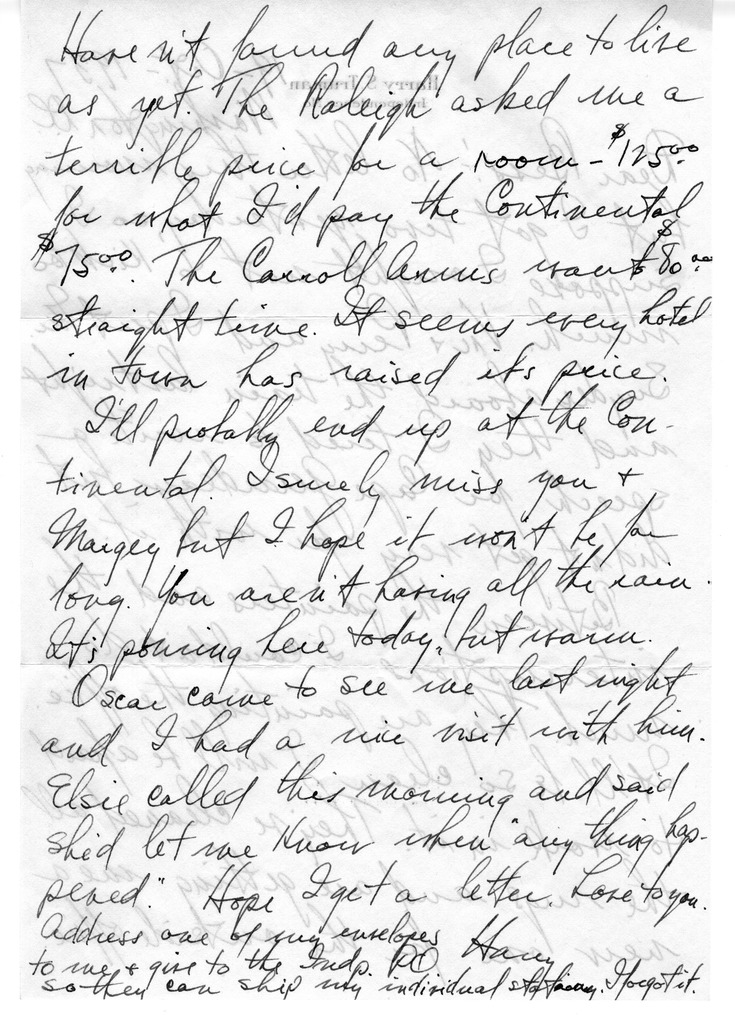 Haven't found any place to live
as yet. The Raleigh asked me a
terrible price for a room - $125.00
for what I'd pay the Continental
$75.00. The Carroll Arms wants $80.00
straight time. It seems every hotel
in town has raised its price.
I'll probably end up at the Con-
tinental. I surely miss you +
Margey but I hope it won't be for
long. You aren't having all the rain.
It's pouring here today, but warm.
Oscar came to see me last night
and I had a nice visit with him.
Elsie called this morning and said
she'd let me know when "any thing hap-
pened." Hope I get a letter. Love to you.
Harry
Address one of my envelopes
to me + give to the Indp. PO
so they can ship my individual stationary. I forgot it.